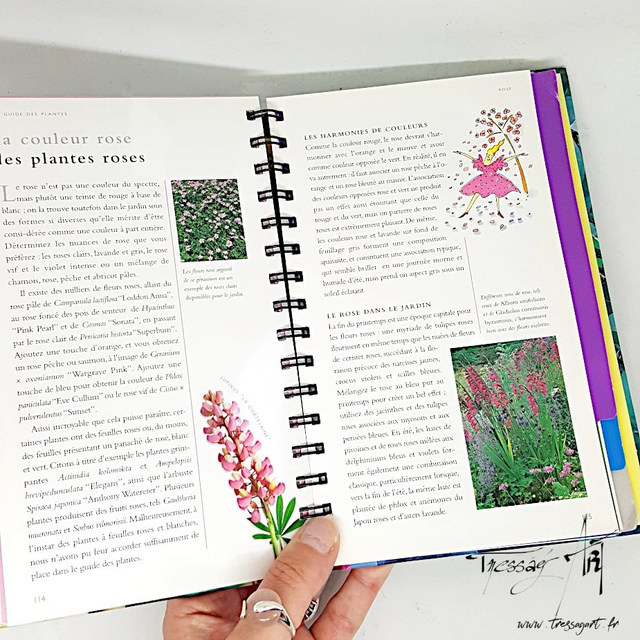 GUIDE DES PLANTES
la couleur rose
des plantes roses
Le rose n'est pas une couleur du spectre,
mais plutôt une teinte de rouge à base de
blanc ; on la trouve toutefois dans le jardin sous
des formes si diverses qu'elle mérite d'être
consi-dérée comme une couleur à part entière.
Déterminez les nuances de rose que vous
préférez : les roses clairs, lavande et gris, le rose
vif et le violet intense ou un mélange de
chamois, rose, pêche et abricot pâles.
Il existe des milliers de fleurs roses, allant du
rose pâle de Campanula lactiflora "Loddon Anna",
au rose foncé des pois de senteur de Hyacinthus
"Pink Pearl" et de Cosmos "Sonata", en passant
par le rose clair de Persicaria bistorta "Superbum".
Ajoutez une touche d'orange, et vous obtenez
un rose pêche ou saumon, à l'image de Geranium
× oxonianum "Wargrave Pink". Ajoutez une
touche de bleu pour obtenir la couleur de Phlox
paniculata "Eve Cullum" ou le rose vif de Cistus ×
pulverulentus "Sunset".
Aussi incroyable que cela puisse paraître, cer-
taines plantes ont des feuilles roses ou, du moins,
des feuilles présentant un panaché de rose, blanc
et vert. Citons à titre d'exemple les plantes grim-
pantes Actinidia kolomikta et Ampelopsis
brevipedunculata "Elegans", ainsi que l'arbuste
Spiraea japonica "Anthony Waterer". Plusieurs
plantes produisent des fruits roses, tels Gaultheria
mucronata et Sorbus vilmorinii. Malheureusement, à
l'instar des plantes à feuilles roses et blanches,
nous n'avons pu leur accorder suffisamment de
place dans le guide des plantes.
114
Les fleurs rose argenté
de ce géranium est un
exemple des roses clairs
disponibles pour le jardin.
ROSE
LES HARMONIES DE COULEURS
Comme la couleur rouge, le rose devrait s'har-
moniser avec l'orange et le mauve et avoir
comme couleur opposée le vert. En réalité, il en
va autrement : il faut associer un rose pêche à l'o-
range et un rose bleuté au mauve. L'association
des couleurs opposées rose et vert ne produit
pas un effet aussi étonnant que celle du
rouge et du vert, mais un parterre de roses
est extrêmement plaisant. De même,
les couleurs rose et lavande sur fond de
feuillage gris forment une composition
apaisante, et constituent une association typique,
qui semble briller en une journée morne et
humide d'été, mais prend un aspect gris sous un
soleil éclatant.
LE ROSE DANS LE JARDIN
La fin du printemps est une époque capitale pour
les fleurs roses : une myriade de tulipes roses
fleurissent en même temps que les nuées de fleurs
de cerisier roses, succédant à la flo-
raison précoce des narcisses jaunes,
crocus violets et scilles bleues.
Mélangez le rose au bleu pur au
printemps pour créer un bel effet ;
utilisez des jacinthes et des tulipes
roses associées aux myosotis et aux
pensées bleues. En été, les haies de
pivoines et de roses roses mêlées aux
delphiniums bleus et violets for-
ment également une combinaison
classique, particulièrement lorsque,
vers la fin de l'été, la même haie est
plantée de phlox et anémones du
Japon roses et d'asters lavande.
Différents tons de rose, tels
ceux de Allium
et de Gladiolus communis
byzantinus, s'harmonisent
bien avec des fleurs violettes
Tressag' Art
www.tressagart.fr